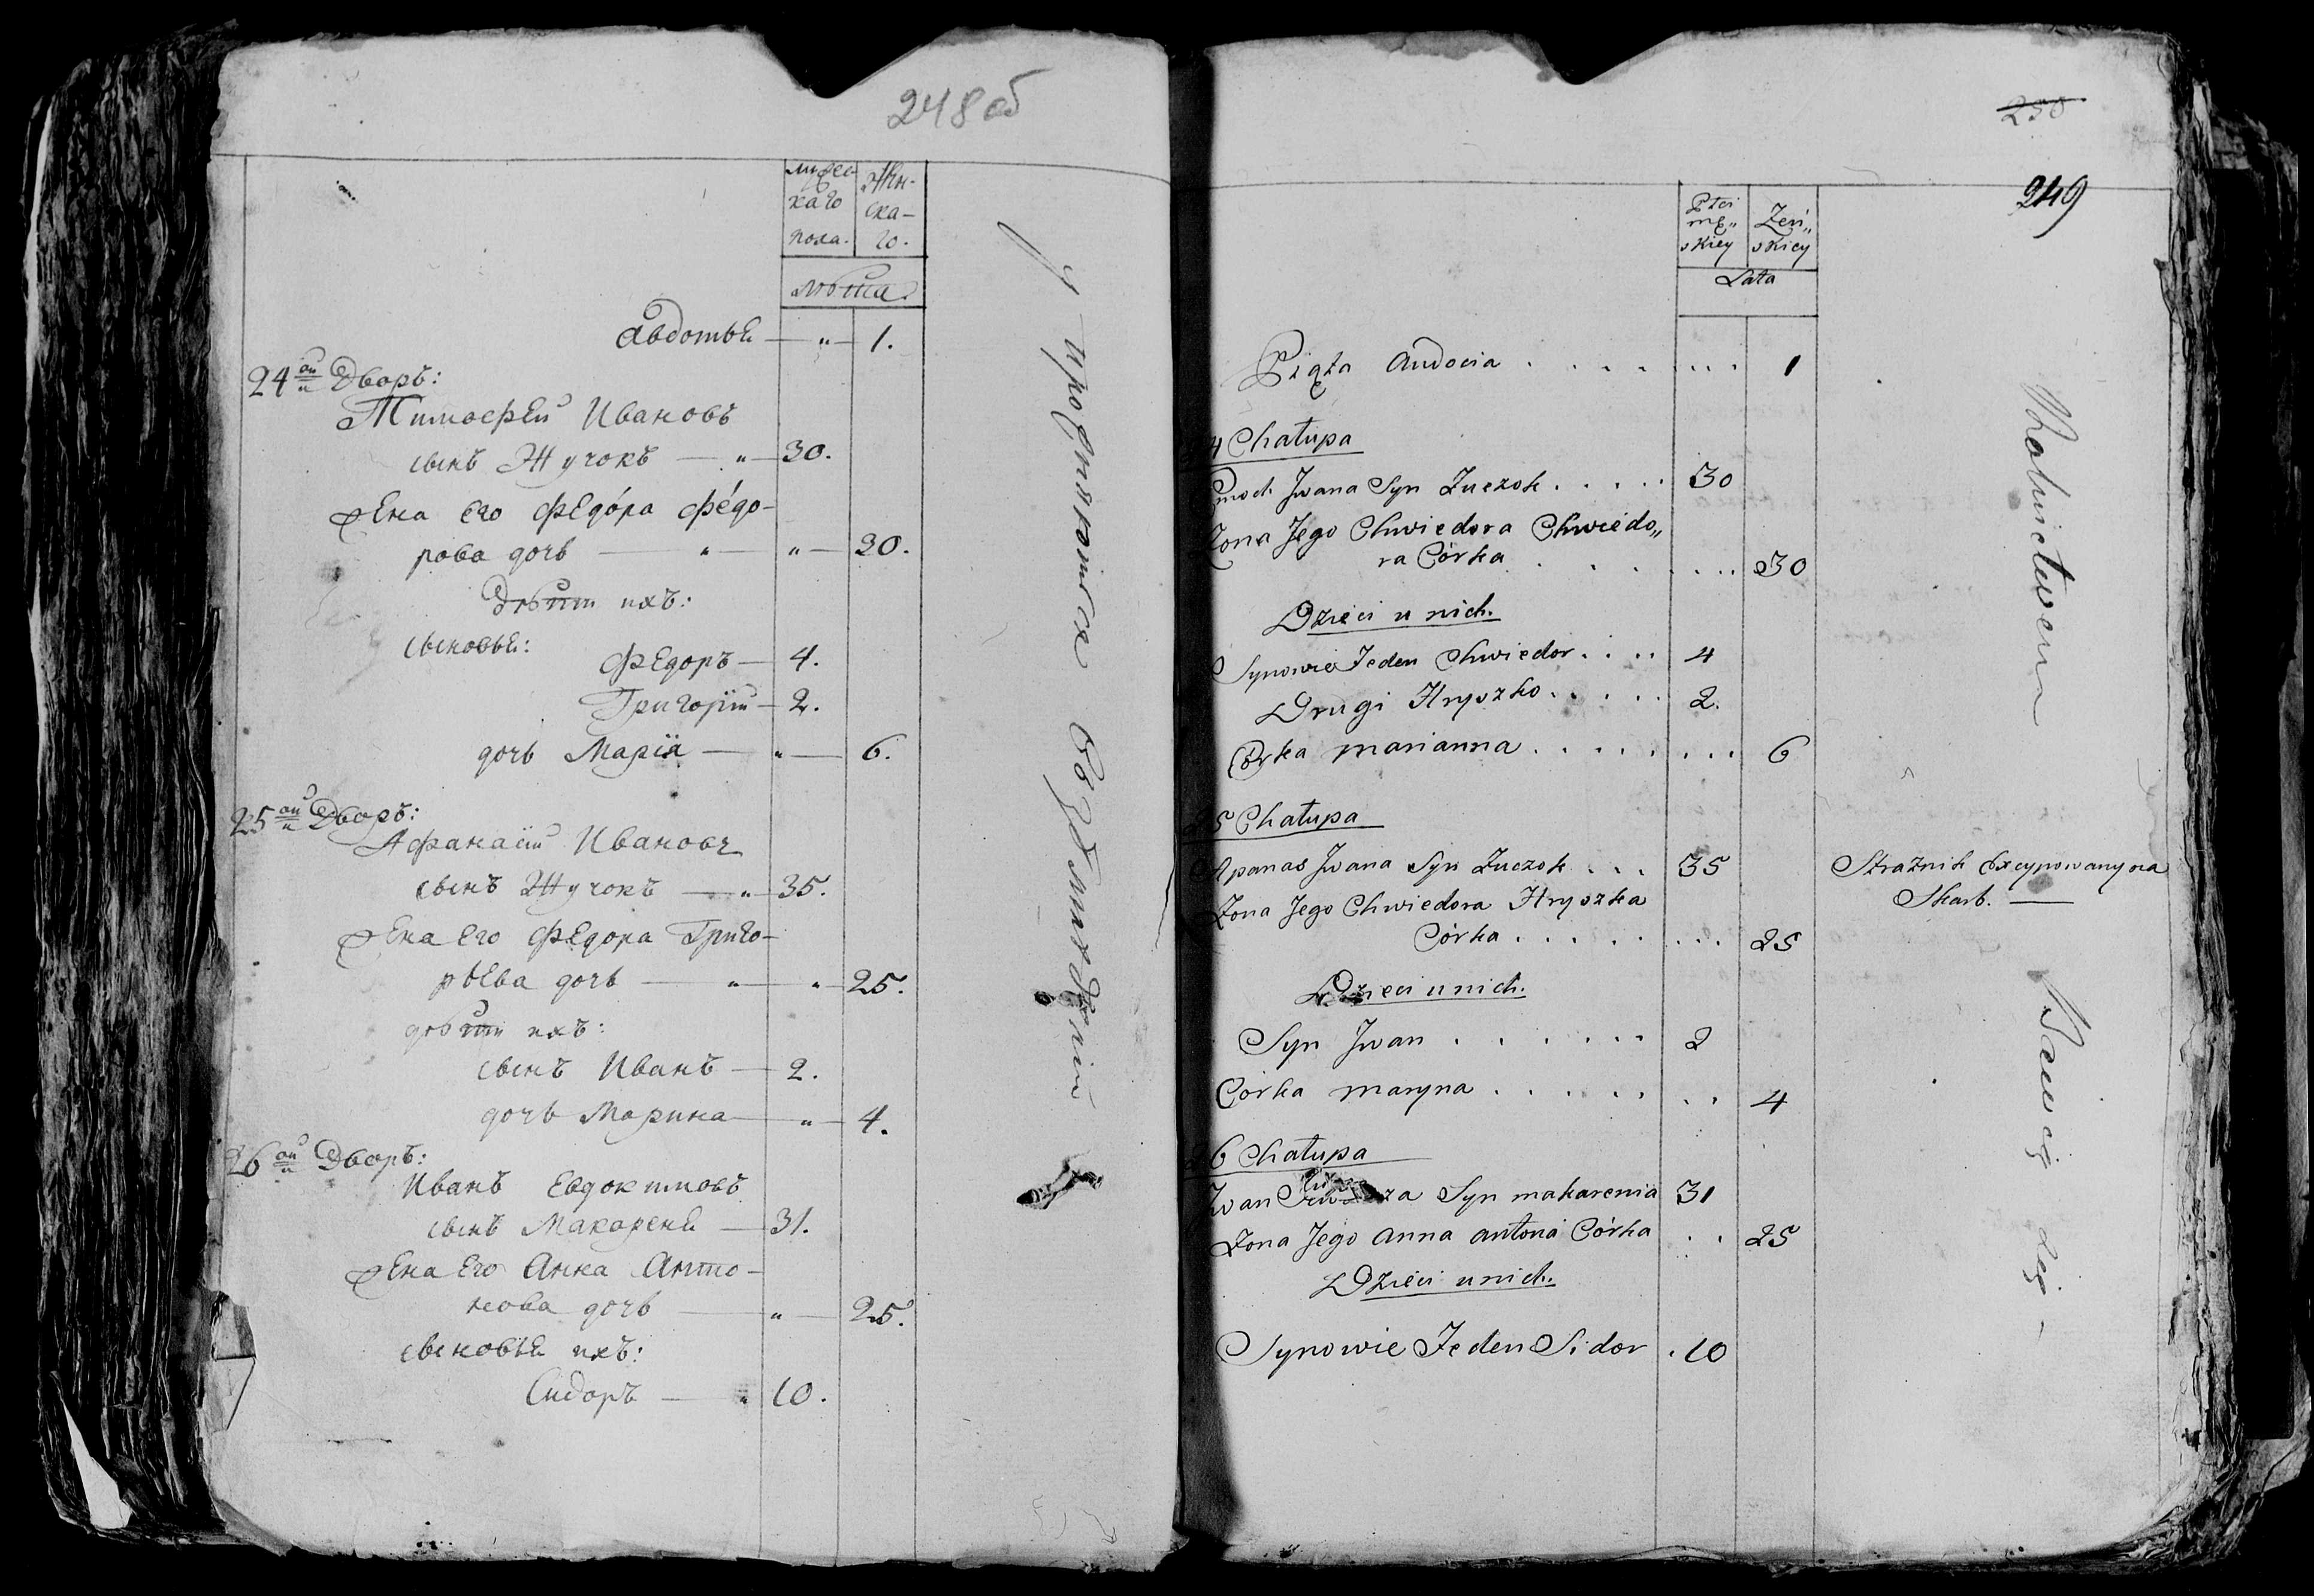 248 об
мужес-
каго
пола.
Жен-
ска-
го.
лѣта.
Авдотья — „ — 1.
24ой Дворъ:
Тимофей Ивановъ
сынъ Жучокъ — „ — 30.
жена его Федо́ра Фе́до-
рова дочь — „ — „ — 30.
Дѣти ихъ:
сыновья:
Федоръ — 4.
Григорій — 2.
дочь Марія — „ — 6.
25ой Дворъ:
Афанасій Ивановъ
сынъ Жучокъ — „ — 35.
жена его Федора Григо-
рьева дочь — „ — „ — 25.
дѣти ихъ:
сынъ Иванъ — 2.
дочь Марина — „ — 4.
26ой Дворъ:
Иванъ Евдокимовъ
сынъ Макареня — 31.
жена его Анна Анто-
нова дочь — „ — 25.
сыновья ихъ:
Сидоръ — „ 10.
250
249
Płci
mę„
skiey
Zeń„
skiey
Lata
Piąta Audocia . . . . . . . 1
4 Chałupa
Jwana Syn Zuczok . . . . . 30
Zona Jego Chwiedora Chwiedo„
ra Córka . . . . . . 30
Dzieci u nich.
Synowie Jeden Chwiedor . . . . 4
Drugi Hryszko . . . . . 2.
Córka marianna . . . . . . . . 6
25 Chałupa
Apanas Jwana Syn Zuczok . . . 35
Strażnik Excypowany na
Skarb. —
Zona Jego Chwiedora Hryszka
Córka . . . . . . . . 25
Dzieci u nich.
Syn Jwan . . . . . . 2
Córka maryna . . . . . . . . 4
26 Chałupa
Jwan Syn makarenia 31
Zona Jego Anna antona Córka . . 25
Dzieci u nich.
Synowie Jeden Sidor . 10